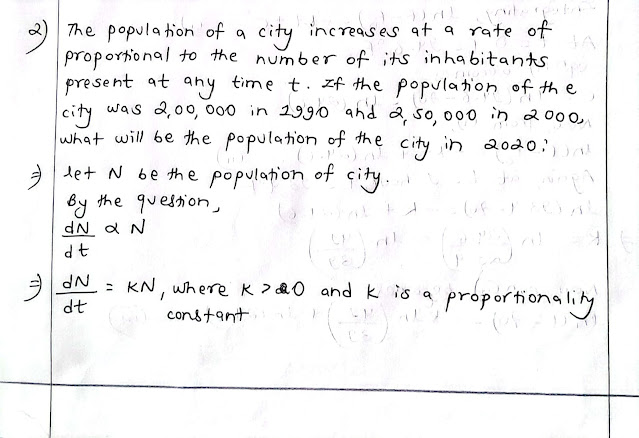 2) The population of a city increases at a rate of
proportional to the number of its inhabitants
present at any time t. If the population of the
city was 2,00,000 in 1990 and 2,50,000 in 2000,
what will be the population of the city in 2020?
⇒ let N be the population of city.
By the question,
dN/dt α N
⇒ dN/dt = KN, where K > 0 and K is a proportionality
constant